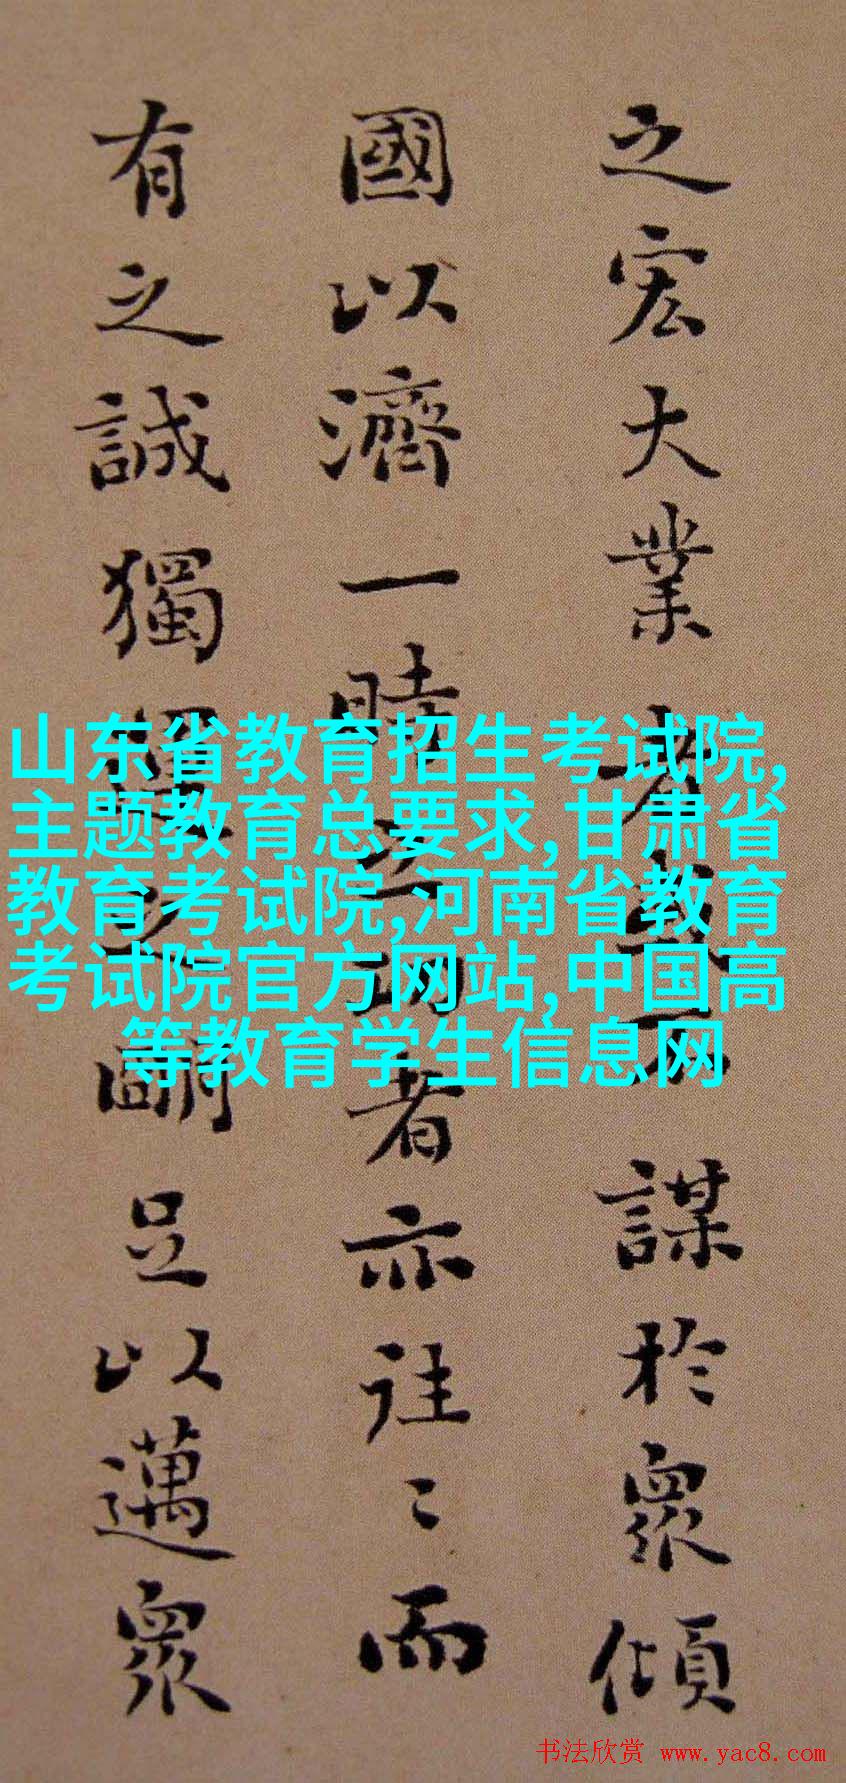 之宏大業者
謀於眾傾
國以濟一時
者亦往々而
有之誠獨
足以邁眾
山东省教育招生考试院,
主题教育总要求,甘肃省
教育考试院,河南省教育
考试院官方网站,中国高
等教育学生信息网
书法欣赏 www.yac8.com